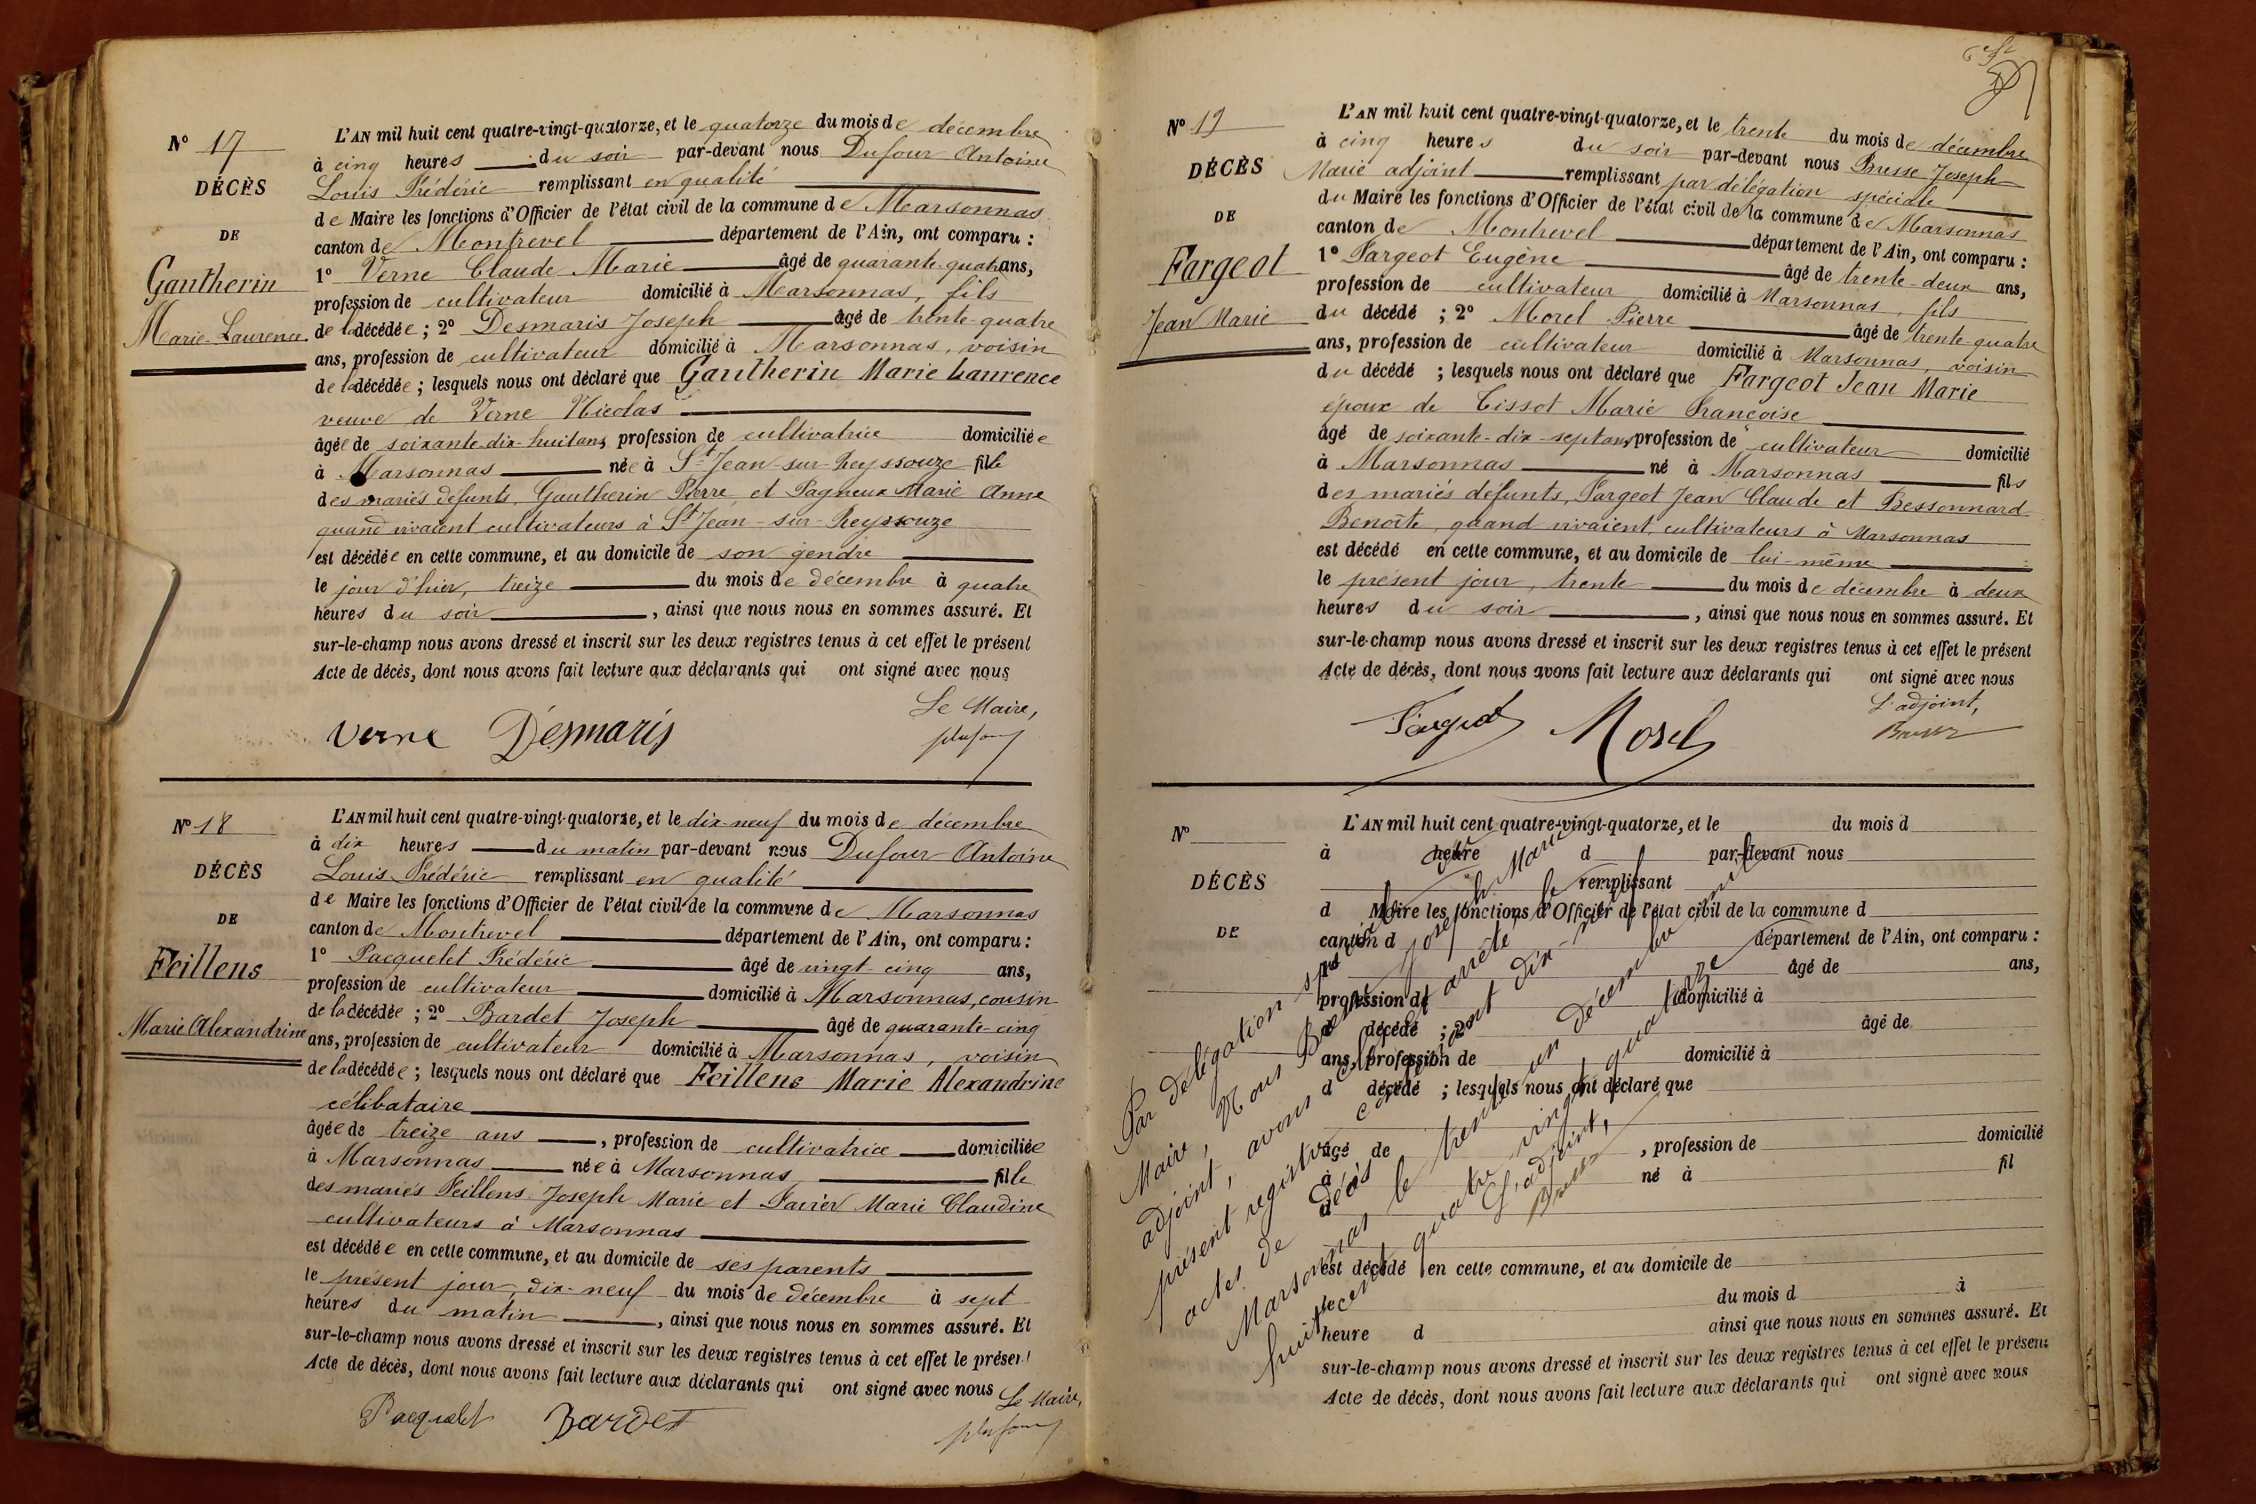 N° 17
DÉCÈS
DE
Gautherin
Marie-Laurence
L'AN mil huit cent quatre-vingt-quatorze, et le quatorze du mois de décembre
à cinq heures du soir par-devant nous Dufour Antoine
Louis Frédéric remplissant en qualité
de Maire les fonctions d'Officier de l'état civil de la commune de Marsonnas
canton de Montrevel département de l'Ain, ont comparu :
1° Verne Claude Marie âgé de quarante-quatre ans,
profession de cultivateur domicilié à Marsonnas, fils
de la décédée ; 2° Desmaris Joseph âgé de trente-quatre
ans, profession de cultivateur domicilié à Marsonnas, voisin
de la décédée ; lesquels nous ont déclaré que Gautherin Marie Laurence
veuve de Verne Nicolas
âgée de soixante-dix-huit ans, profession de cultivatrice domiciliée
à Marsonnas née à St-Jean-sur-Reyssouze fille
des mariés défunts, Gautherin Pierre et Pagneux Marie Anne
quand vivaient cultivateurs à St-Jean-sur-Reyssouze
est décédée en cette commune, et au domicile de son gendre
le jour d'hier, treize du mois de décembre à quatre
heures du soir, ainsi que nous nous en sommes assuré. Et
sur-le-champ nous avons dressé et inscrit sur les deux registres tenus à cet effet le présent
Acte de décès, dont nous avons fait lecture aux déclarants qui ont signé avec nous
Le Maire,
Verne Desmaris Dufour
N° 18
DÉCÈS
DE
Feillens
Marie Alexandrine
L'AN mil huit cent quatre-vingt-quatorze, et le dix-neuf du mois de décembre
à dix heures du matin par-devant nous Dufour Antoine
Louis Frédéric remplissant en qualité
de Maire les fonctions d'Officier de l'état civil de la commune de Marsonnas
canton de Montrevel département de l'Ain, ont comparu :
1° Pacquelet Frédéric âgé de vingt-cinq ans,
profession de cultivateur domicilié à Marsonnas, cousin
de la décédée ; 2° Bardet Joseph âgé de quarante-cinq
ans, profession de cultivateur domicilié à Marsonnas, voisin
de la décédée ; lesquels nous ont déclaré que Feillens Marie Alexandrine
célibataire
âgée de treize ans, profession de cultivatrice domiciliée
à Marsonnas née à Marsonnas fille
des mariés Feillens Joseph Marie et Favier Marie Claudine
cultivateurs à Marsonnas
est décédée en cette commune, et au domicile de ses parents
le présent jour, dix-neuf du mois de décembre à sept
heures du matin, ainsi que nous nous en sommes assuré. Et
sur-le-champ nous avons dressé et inscrit sur les deux registres tenus à cet effet le présent
Acte de décès, dont nous avons fait lecture aux déclarants qui ont signé avec nous
Le Maire,
Pacquelet Bardet Dufour
N° 19
DÉCÈS
DE
Fargeot
Jean Marie
L'AN mil huit cent quatre-vingt-quatorze, et le trente du mois de décembre
à cinq heures du soir par-devant nous Brusse Joseph
Marie adjoint remplissant par délégation spéciale
du Maire les fonctions d'Officier de l'état civil de la commune de Marsonnas
canton de Montrevel département de l'Ain, ont comparu :
1° Fargeot Eugène âgé de trente-deux ans,
profession de cultivateur domicilié à Marsonnas, fils
du décédé ; 2° Morel Pierre âgé de trente-quatre
ans, profession de cultivateur domicilié à Marsonnas, voisin
du décédé ; lesquels nous ont déclaré que Fargeot Jean Marie
époux de Tissot Marie Françoise
âgé de soixante-dix-sept ans, profession de cultivateur domicilié
à Marsonnas né à Marsonnas fils
des mariés défunts, Fargeot Jean Claude et Bessonnard
Benoîte, quand vivaient, cultivateurs à Marsonnas
est décédé en cette commune, et au domicile de lui-même
le présent jour, trente du mois de décembre à deux
heures du soir, ainsi que nous nous en sommes assuré. Et
sur-le-champ nous avons dressé et inscrit sur les deux registres tenus à cet effet le présent
Acte de décès, dont nous avons fait lecture aux déclarants qui ont signé avec nous
L'adjoint,
Fargeot Morel Brusse
N°
DÉCÈS
DE
L'AN mil huit cent quatre-vingt-quatorze, et le du mois d
à heure d par-devant nous
remplissant
d Maire les fonctions d'Officier de l'état civil de la commune d
canton d département de l'Ain, ont comparu :
1° âgé de ans,
profession de domicilié à
d décédé ; 2° âgé de
ans, profession de domicilié à
d décédé ; lesquels nous ont déclaré que
âgé de , profession de domicilié
à né à fil
d
est décédé en cette commune, et au domicile de
le du mois d à
heure d ainsi que nous nous en sommes assuré. Et
sur-le-champ nous avons dressé et inscrit sur les deux registres tenus à cet effet le présent
Acte de décès, dont nous avons fait lecture aux déclarants qui ont signé avec nous
Par délégation spéciale du
Maire, Nous Brusse Joseph Marie
adjoint, avons clos et arrêté le
présent registre contenant dix-neuf
actes de décès
Marsonnas le trente un décembre mil
huit cent quatre-vingt quatorze
L'adjoint,
Brusse